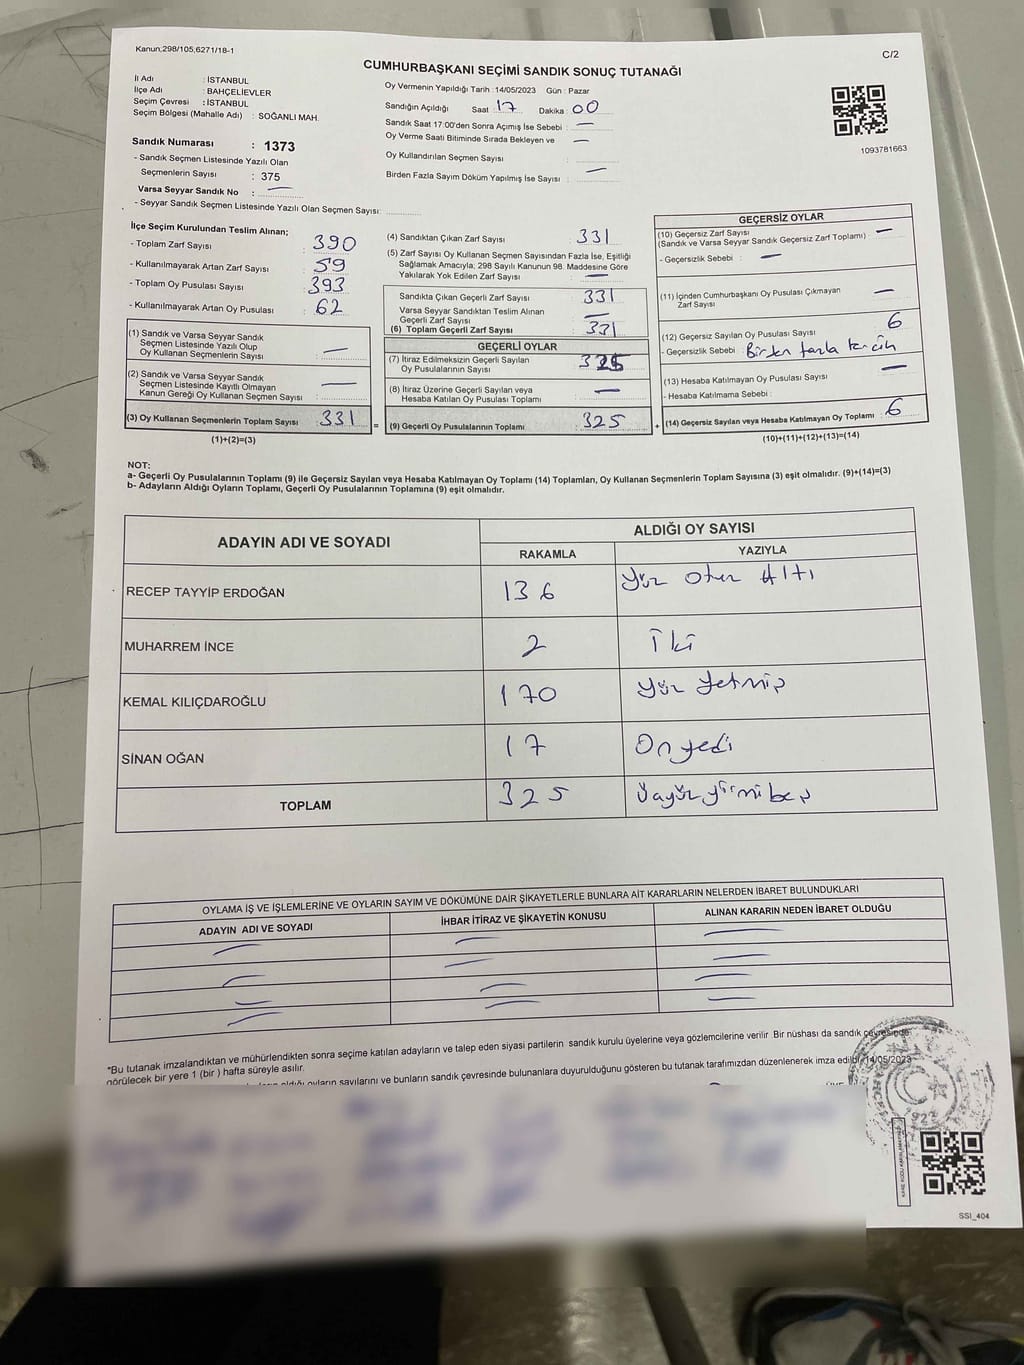 Kanun;298/105,6271/18-1
C/2
CUMHURBAŞKANI SEÇİMİ SANDIK SONUÇ TUTANAĞI
İl Adı : İSTANBUL
İlçe Adı : BAHÇELİEVLER
Seçim Çevresi : İSTANBUL
Seçim Bölgesi (Mahalle Adı) : SOĞANLI MAH.
Oy Vermenin Yapıldığı Tarih :14/05/2023 Gün : Pazar
Sandığın Açıldığı Saat : 17 Dakika : 00
Sandık Saat 17:00'den Sonra Açımış İse Sebebi : —
Oy Verme Saati Bitiminde Sırada Bekleyen ve —
Oy Kullandırılan Seçmen Sayısı :
Birden Fazla Sayım Döküm Yapılmış İse Sayısı : —
1093781663
Sandık Numarası : 1373
- Sandık Seçmen Listesinde Yazılı Olan
Seçmenlerin Sayısı : 375
Varsa Seyyar Sandık No : —
- Seyyar Sandık Seçmen Listesinde Yazılı Olan Seçmen Sayısı:
İlçe Seçim Kurulundan Teslim Alınan;
- Toplam Zarf Sayısı : 390
- Kullanılmayarak Artan Zarf Sayısı : 59
- Toplam Oy Pusulası Sayısı : 393
- Kullanılmayarak Artan Oy Pusulası : 62
(1) Sandık ve Varsa Seyyar Sandık
Seçmen Listesinde Yazılı Olup
Oy Kullanan Seçmenlerin Sayısı : —
(2) Sandık ve Varsa Seyyar Sandık
Seçmen Listesinde Kayıtlı Olmayan
Kanun Gereği Oy Kullanan Seçmen Sayısı : —
(3) Oy Kullanan Seçmenlerin Toplam Sayısı : 331 =
(1)+(2)=(3)
(4) Sandıktan Çıkan Zarf Sayısı : 331
(5) Zarf Sayısı Oy Kullanan Seçmen Sayısından Fazla İse, Eşitliği
Sağlamak Amacıyla; 298 Sayılı Kanunun 98. Maddesine Göre
Yakılarak Yok Edilen Zarf Sayısı : —
Sandıkta Çıkan Geçerli Zarf Sayısı : 331
Varsa Seyyar Sandıktan Teslim Alınan
Geçerli Zarf Sayısı : —
(6) Toplam Geçerli Zarf Sayısı : 331
GEÇERLİ OYLAR
(7) İtiraz Edilmeksizin Geçerli Sayılan
Oy Pusulalarının Sayısı : 325
(8) İtiraz Üzerine Geçerli Sayılan veya
Hesaba Katılan Oy Pusulası Toplamı : —
(9) Geçerli Oy Pusulalarının Toplamı : 325 +
GEÇERSİZ OYLAR
(10) Geçersiz Zarf Sayısı
(Sandık ve Varsa Seyyar Sandık Geçersiz Zarf Toplamı) : —
- Geçersizlik Sebebi : —
(11) İçinden Cumhurbaşkanı Oy Pusulası Çıkmayan
Zarf Sayısı : —
(12) Geçersiz Sayılan Oy Pusulası Sayısı : 6
- Geçersizlik Sebebi : Birden fazla tercih
(13) Hesaba Katılmayan Oy Pusulası Sayısı : —
- Hesaba Katılmama Sebebi :
(14) Geçersiz Sayılan veya Hesaba Katılmayan Oy Toplamı : 6
(10)+(11)+(12)+(13)=(14)
NOT:
a- Geçerli Oy Pusulalarının Toplamı (9) ile Geçersiz Sayılan veya Hesaba Katılmayan Oy Toplamı (14) Toplamları, Oy Kullanan Seçmenlerin Toplam Sayısına (3) eşit olmalıdır. (9)+(14)=(3)
b- Adayların Aldığı Oyların Toplamı, Geçerli Oy Pusulalarının Toplamına (9) eşit olmalıdır.
ADAYIN ADI VE SOYADI
ALDIĞI OY SAYISI
RAKAMLA YAZIYLA
RECEP TAYYİP ERDOĞAN 136 Yüz Otuz Altı
MUHARREM İNCE 2 İki
KEMAL KILIÇDAROĞLU 170 Yüz Yetmiş
SİNAN OĞAN 17 On yedi
TOPLAM 325 Üçyüz yirmi beş
OYLAMA İŞ VE İŞLEMLERİNE VE OYLARIN SAYIM VE DÖKÜMÜNE DAİR ŞİKAYETLERLE BUNLARA AİT KARARLARIN NELERDEN İBARET BULUNDUKLARI
ADAYIN ADI VE SOYADI İHBAR İTİRAZ VE ŞİKAYETİN KONUSU ALINAN KARARIN NEDEN İBARET OLDUĞU
*Bu tutanak imzalandıktan ve mühürlendikten sonra seçime katılan adayların ve talep eden siyasi partilerin sandık kurulu üyelerine veya gözlemcilerine verilir. Bir nüshası da sandık çevresinde
görülecek bir yere 1 (bir ) hafta süreyle asılır.
aldığı oyların sayılarını ve bunların sandık çevresinde bulunanlara duyurulduğunu gösteren bu tutanak tarafımızdan düzenlenerek imza edildi.14/05/2023
SSI_404